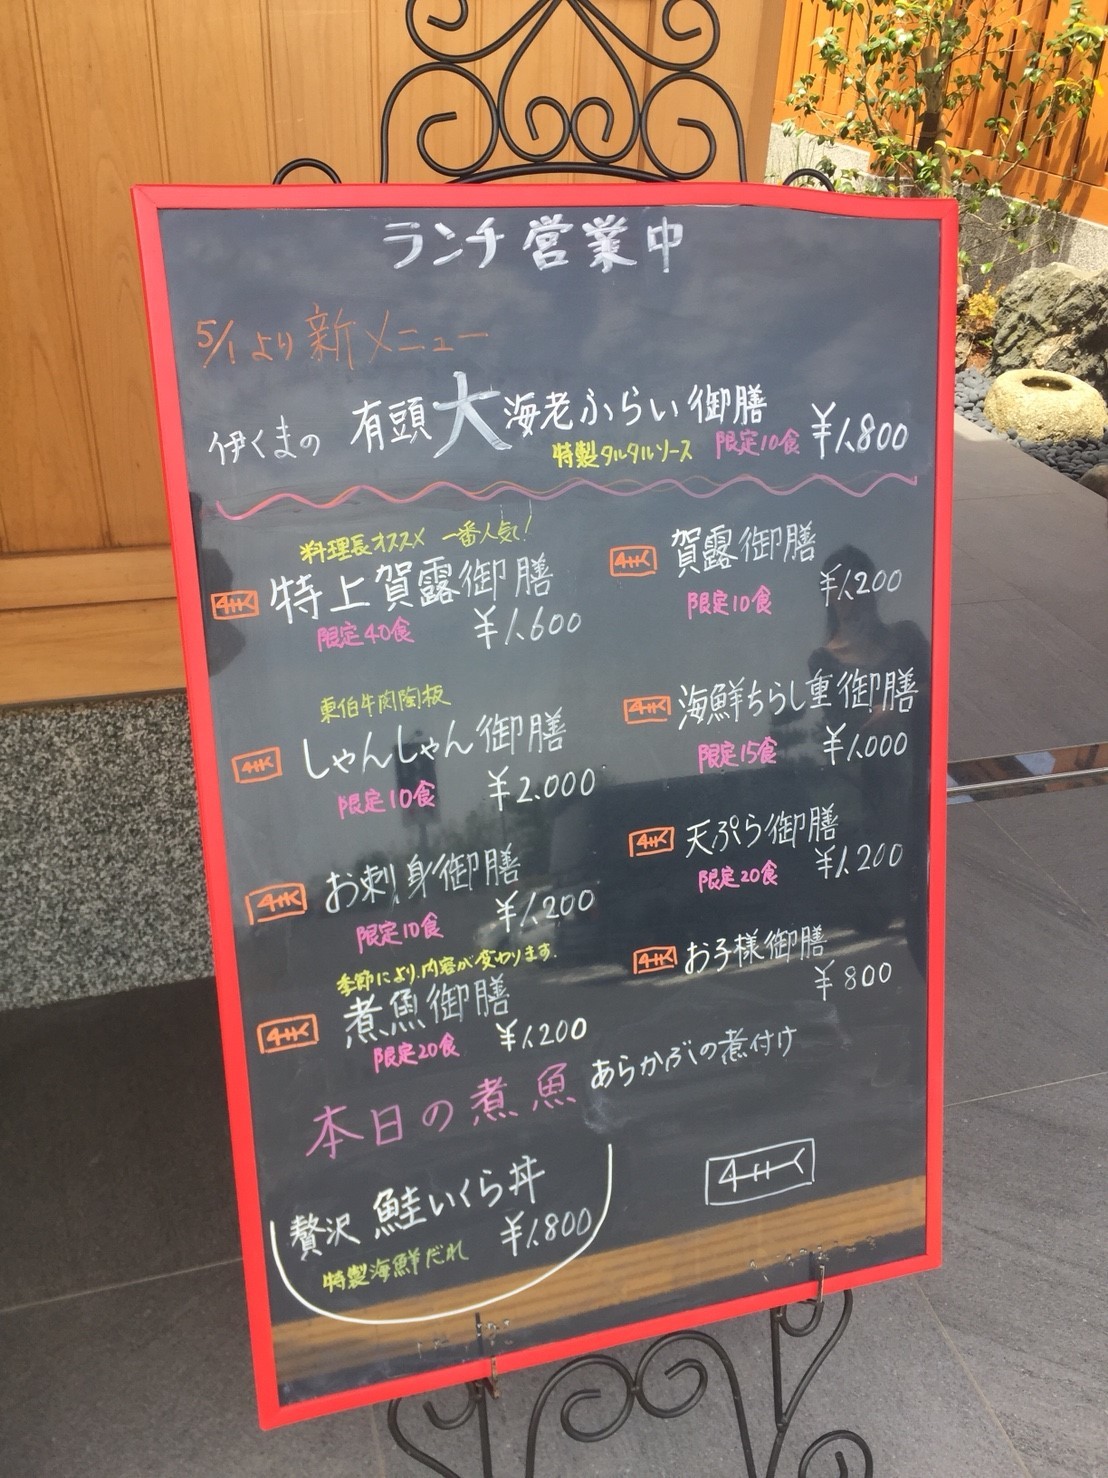 ランチ営業中
5/1より新メニュー
伊くまの 有頭大海老ふらい御膳
特製タルタルソース 限定10食 ¥1.800
料理長オススメ 一番人気!
特上賀露御膳
限定40食 ¥1.600
東伯牛肉陶板
しゃんしゃん御膳
限定10食 ¥2.000
お刺身御膳
限定10食 ¥1.200
季節により、内容が変わります.
煮魚御膳
限定20食 ¥1.200
賀露御膳
限定10食 ¥1.200
海鮮ちらし重御膳
限定15食 ¥1.000
天ぷら御膳
限定20食 ¥1.200
お子様御膳
¥800
本日の煮魚 あらかぶの煮付け
贅沢 鮭いくら丼
特製海鮮だれ ¥1.800